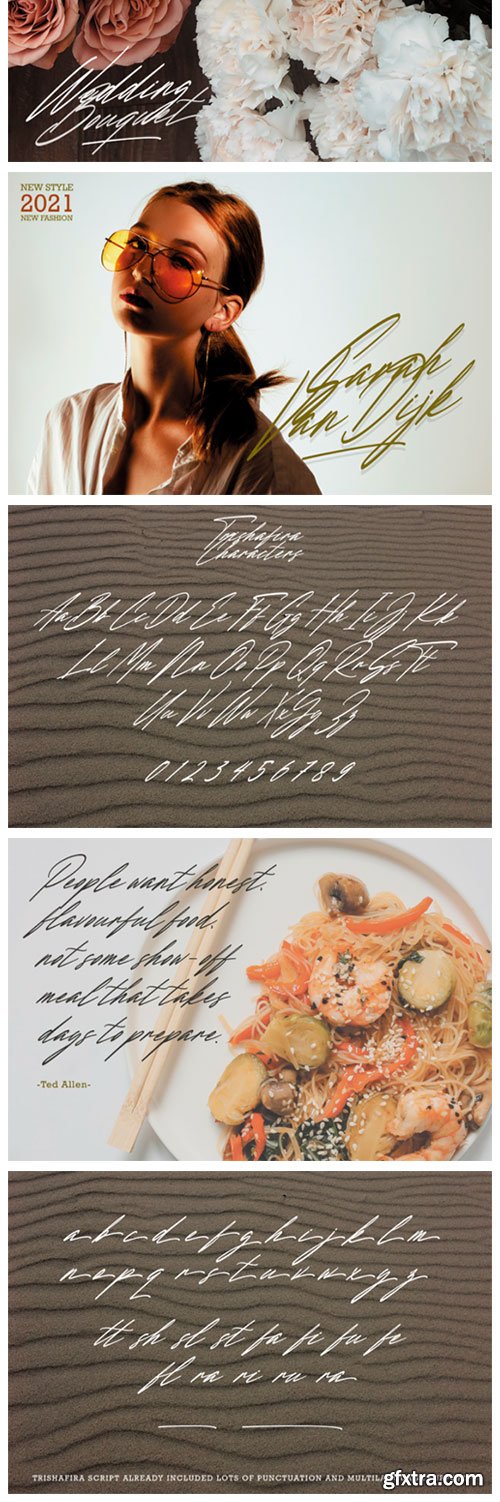 Wedding
Bouquet
NEW STYLE
2021
NEW FASHION
Sarah
Van Dijk
Trishafira
Characters
Aa Bb Cc Dd Ee Ff Gg Hh Ii Jj Kk
Ll Mm Nn Oo Pp Qq Rr Ss Tt
Uu Vv Ww Xx Yy Zz
0 1 2 3 4 5 6 7 8 9
People want honest,
flavourful food,
not some show-off
meal that takes
days to prepare.
-Ted Allen-
a b c d e f g h i j k l m
n o p q r s t u v w x y z
tt sh sl st fa fi fu fe
fl ra ri ru ra
TRISHAFIRA SCRIPT ALREADY INCLUDED LOTS OF PUNCTUATION AND
gfxtra.com